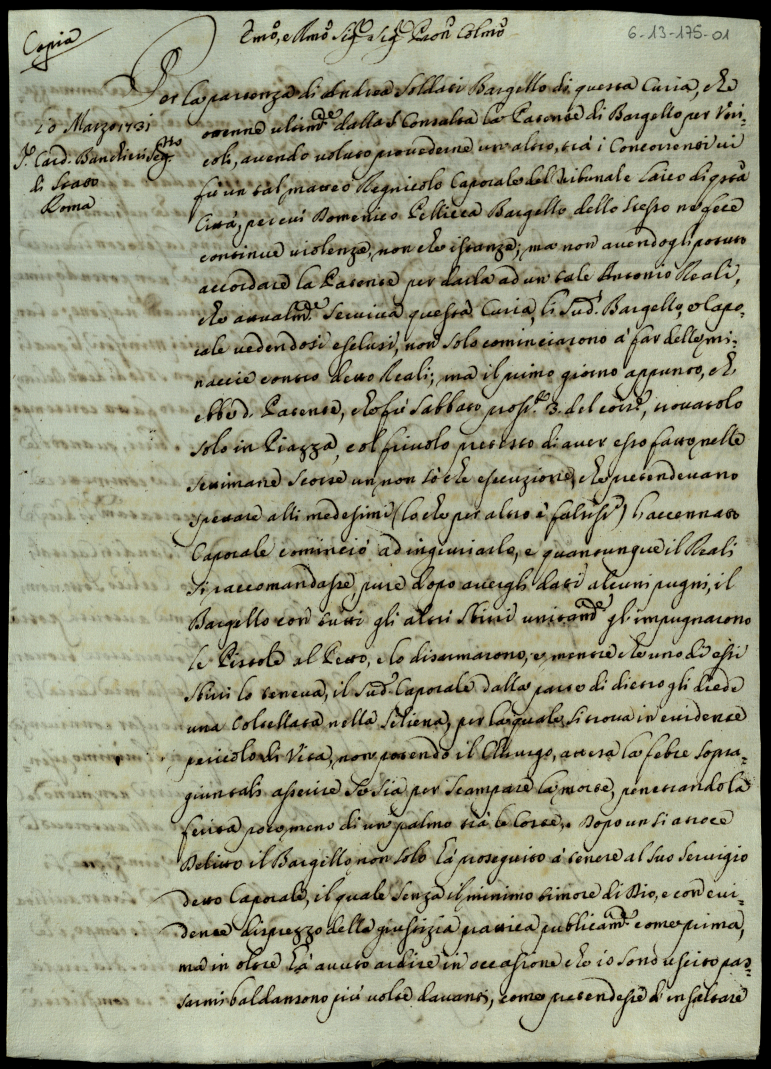 6-13-175-01
Copia
Emo, e Rmo Sig. Sig. Pron Colmo
10 Marzo 1731
Card. Banchieri Segrio
di Stato
Roma
Per la partenza di Andrea Soldati Bargello di questa Curia, che
ottenne ultimte dalla S. Consulta la Patente di Bargello per Veri-
coli, avendo voluto provederne un altro, trà i Concorrenti vi
fù un tal Matteo Regnicolo Caporale del Tribunale Laico di qsta
Città, per cui Domenico Pellicca Bargello dello stesso ne fece
continue violenze, non che istanze; ma non avendogli potuto
accordare la Patente per darla ad un tale Antonio Reali,
che attualmte serviva questa Curia, li sud. Bargello, e Capo-
rale vedendosi esclusi, non solo cominciarono à far delle mi-
naccie contro detto Reali; ma il primo giorno appunto, che
ebbe d. Patente, che fù Sabbato pross. 3. del corre, trovatolo
solo in Piazza, col frivolo pretesto di aver esso fatto nelle
settimane scorse un non sò che esecuzione, che pretendevano
spettare alli medesimi (lo che per altro è falsiss.) l'accennato
Caporale cominciò ad ingiuriarlo, e quantunque il Reali
si raccomandasse, pure dopo avergli dati alcuni pugni, il
Bargello con tutti gli altri Sbirri unitamte gl'impugnarono
le Pistole al Petto, e lo disarmarono, e mentre che uno di essi
Sbirri lo teneva, il sud. Caporale dalla parte di dietro gli diede
una Coltellata nella Schiena, per la quale si trova in evidente
pericolo di Vita, non potendo il Chirurgo, attesa la febre sopra-
giuntali asserire se sia per scampare la morte, penetrando la
ferita poco meno di un palmo trà le Coste. Dopo un sì atroce
Delitto il Bargello non solo hà proseguito à tenere al suo servigio
detto Caporale, il quale senza il minimo timore di Dio, e con evi-
dente disprezzo della giustizia prattica publicamte come prima,
ma in oltre hà avuto ardire in occasione che io sono uscito pas-
sarmi baldanzoso più volte davanti, come pretendesse d'insultare